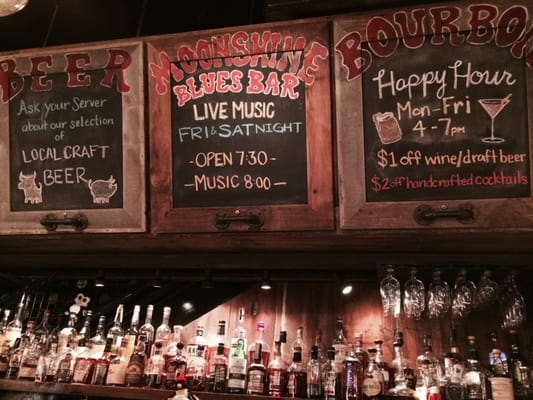 BEER
Ask your Server
about our selection
of
LOCAL CRAFT
BEER
MOONSHINE
BLUES BAR
LIVE MUSIC
FRI & SAT NIGHT
- OPEN 7:30 -
- MUSIC 8:00 -
BOURBON
Happy Hour
Mon-Fri
4-7pm
$1 off wine/draft beer
$2 off handcrafted cocktails